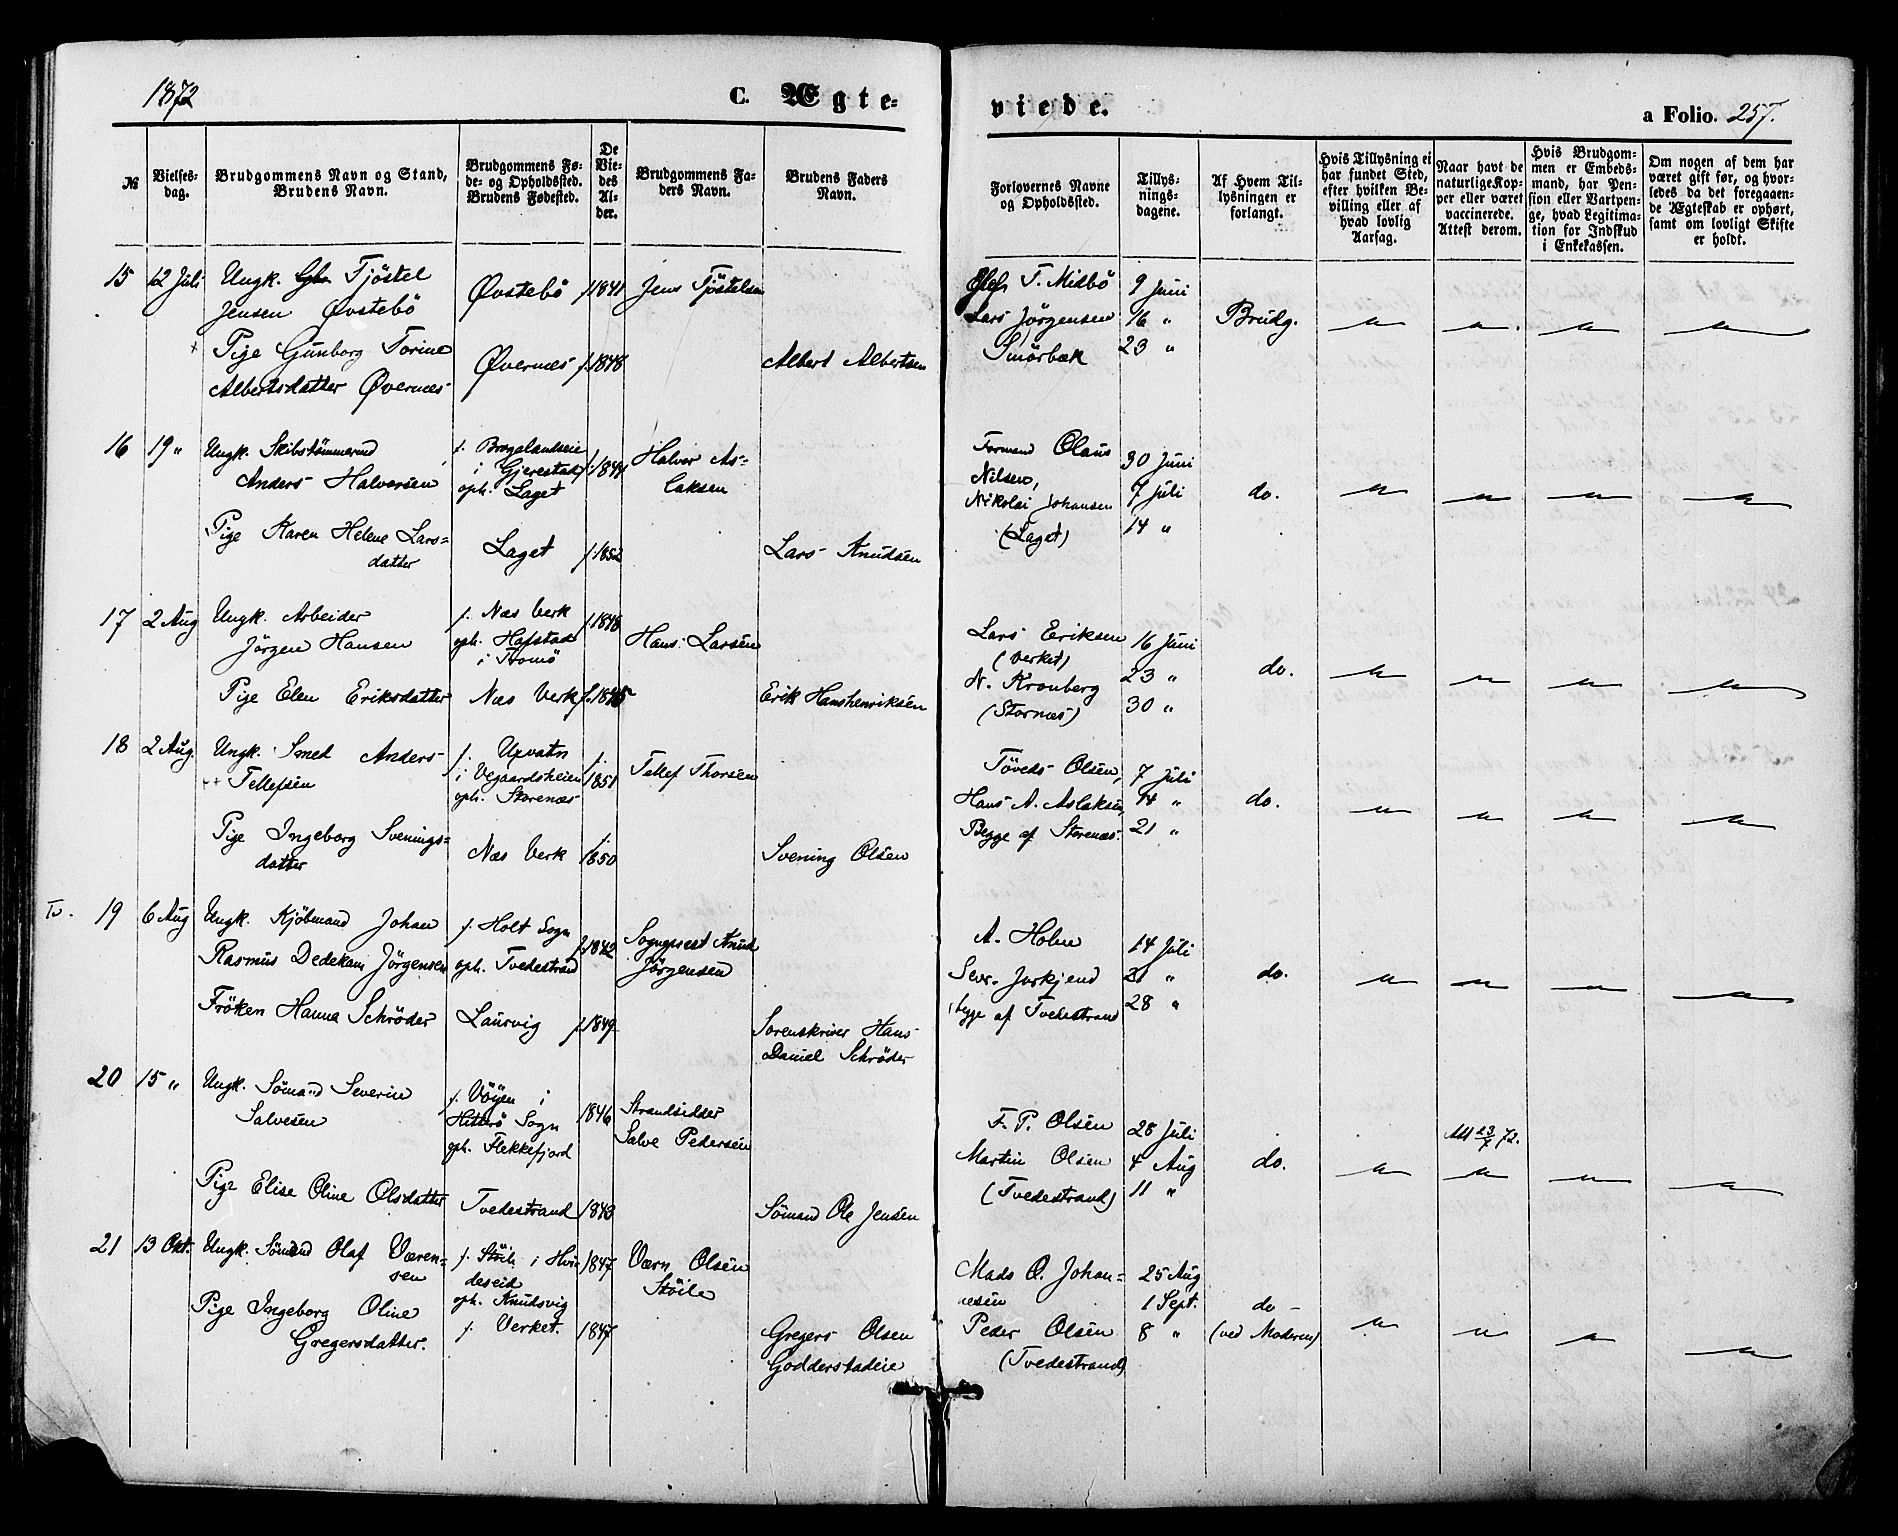 1872
C. Ægte-
viede.
a Folio. 257.
№
Vielses-
dag.
Brudgommens Navn og Stand,
Brudens Navn.
Brudgommens Fø-
de- og Opholdssted.
Brudens Fødested.
De
Vie-
des
Al-
der.
Brudgommens Fa-
ders Navn.
Brudens Faders
Navn.
Forlovernes Navne
og Opholdssted.
Tillys-
nings-
dagene.
Af Hvem Til-
lysningen er
forlangt.
Hvis Tillysning ei
har fundet Sted,
efter hvilken Be-
villing eller af
hvad lovlig
Aarsag.
Naar havt de
naturlige Kop-
per eller været
vaccinerede.
Attest derom.
Hvis Brudgom-
men er Embeds-
mand, har Pen-
sion eller Vartpen-
ge, hvad Legitima-
tion for Indskud
i Enkekassen.
Om nogen af dem har
været gift før, og hvor-
ledes da det foregaaen-
de Ægteskab er ophørt,
samt om lovligt Skifte
er holdt.
15 12 Juli Ungk. Tjöstel
Jensen Øvstebö
Øvstebö f. 1841 Jens Tjöstelsen
T. Midbö 9 Juni
Lars Jörgensen 16 " Brudg.
Smörbæk 23 "
Pige Gunborg Torine
Albertsdatter Øvernæs
Øvernæs f. 1848 Albert Albertsen
16 19 " Ungk. Skibstømmermd
Anders Halvorsen
i Gjerestad
oph. Laget
Halvor As-
laksen
Formand Olaus
Nilsen,
Nikolai Johansen
(Laget)
30 Juni
7 Juli
14 "
do.
Pige Karen Helene Lars-
datter
Laget f. 1852 Lars Knudsen
17 2 Aug Ungk. Arbeider
Jörgen Hansen
f. Næs Verk
oph. Hofstad
i Tromö
f. 1848 Hans Larsen
Lars Eriksen
(Verket)
N. Kronberg
(Stornæs)
16 Juni
23 "
30 "
do.
Pige Elen Eriksdatter Næs Verk f. 1845 Erik Hanshenriksen
18 2 Aug. Ungk. Smed Anders
Tellefsen
f. Uxvatn
i Vegaardsheien
oph. Storenæs
f.
1851 Tellef Thorsen
Töveds Olsen,
Hans A. Aslaksen,
Begge af Storenæs.
7 Juli
14 "
21 "
do.
Pige Ingeborg Svenings-
datter
Næs Verk f.
1850 Svening Olsen
Tv. 19 6 Aug Ungk. Kjöbmand Johan
Rasmus Dedekam Jörgensen
f. Holt Sogn
oph. Tvedestrand
f. 1842 Sognepræst Knud
Jörgensen
A. Holm
begge af Tvedestrand
14 Juli
21 "
28 "
do.
Fröken Hanna Schröder Laurvig f. 1849
Sorenskriver Hans
Daniel Schröder
20 15 " Ungk. Sömand Severin
Salvesen
f. Vöyen i
Hitterö Sogn
oph. Flekkefjord
1846 Strandsidder
Salve Pedersen
F. P. Olsen
Martin Olsen
(Tvedestrand)
28 Juli
4 Aug
11 "
do.
Att 23/7 72.
Pige Elise Oline Olsdatter Tvedestrand 1843 Sömand Ole Jensen
21 13 Okt. Ungk. Sömand Olaf Væren-
sen
f. Stöile i Hvi-
deseid
oph. Knudsvig
1847 Værn Olsen
Stöile
Mads O. Johan-
nesen
Peder Olsen
(Tvedestrand)
25 Aug
1 Sept.
8 "
do -
(ved Moderen)
Pige Ingeborg Oline
Gregersdatter.
f. Verket. 1847 Gregers Olsen
Godderstadeie